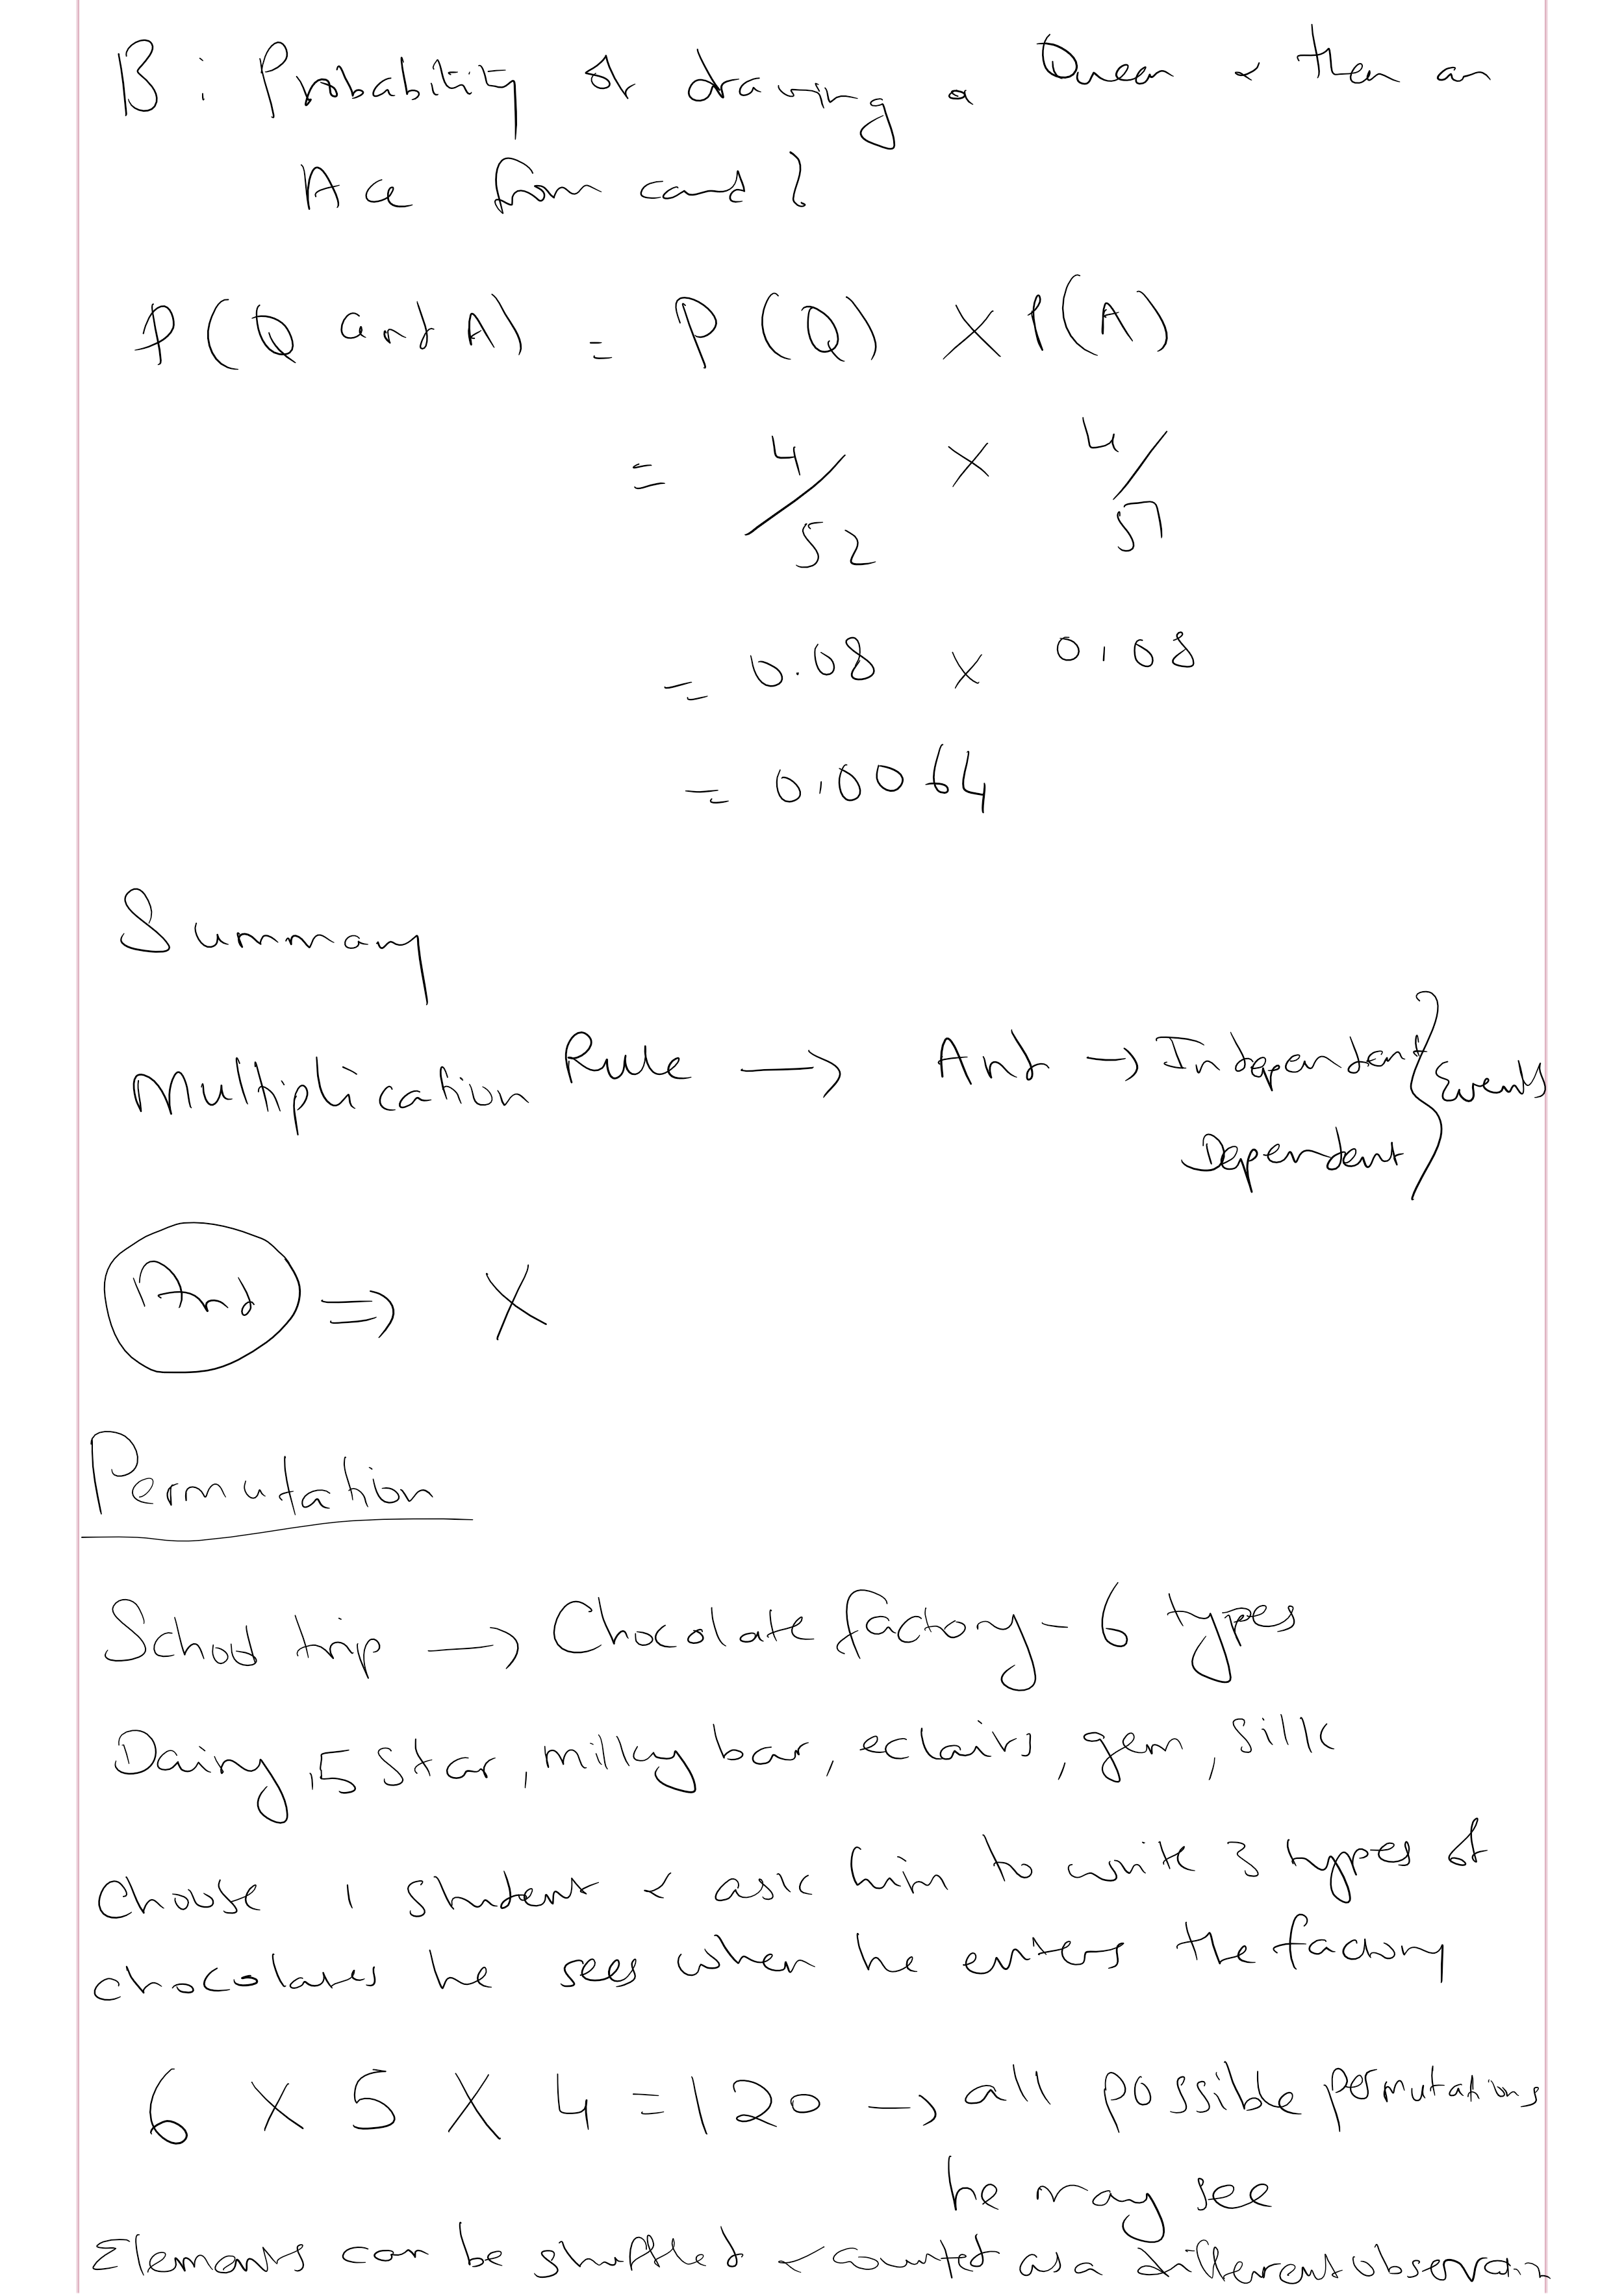 B : Probability of drawing a Queen & then an
Ace from card ?
P (Q and A) = P (Q) X P(A)
= 4/52 X 4/51
= 0.08 x 0.08
= 0.0064
Summary
Multiplication Rule → And → Independent } Events
Dependent
And ⇒ X
Permutation
School trip → Chocolate factory - 6 types
Dairy, 5 Star, milky bar, eclairs, gem, silk
Choose 1 student & ask him to write 3 types of
chocolates he sees when he enters the factory
6 X 5 X 4 = 120 → all possible permutations
he may see
Elements can be shuffled & counted as a different observation